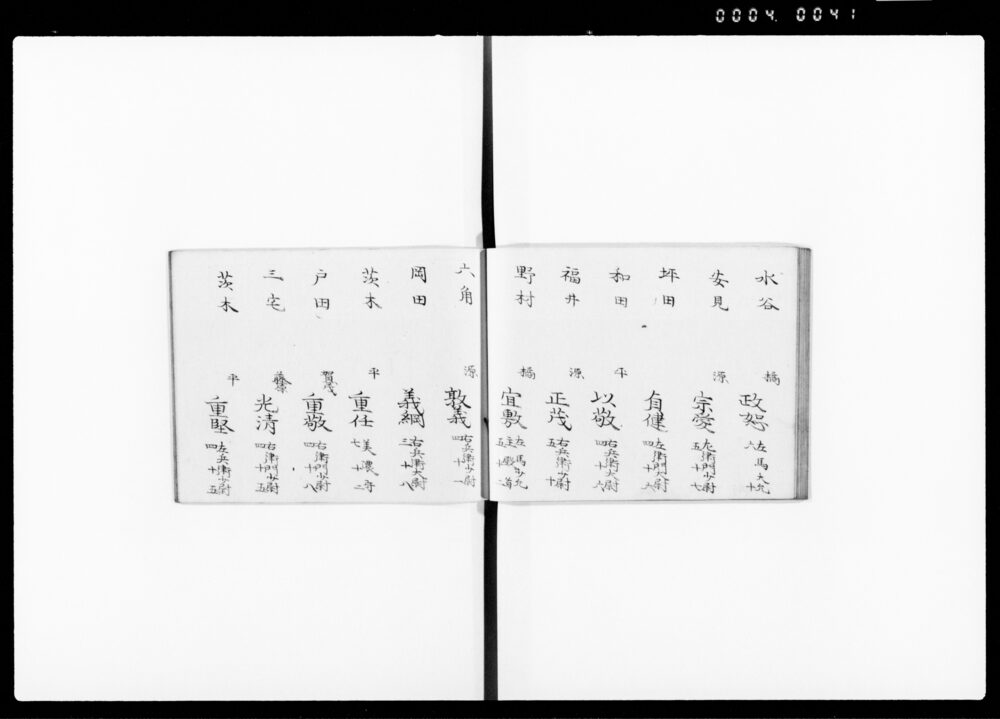 0004 0041
水谷 橘 政恕 左馬大允 六十
安見 源 宗愛 左衛門少尉 五十七
坪田 有健 左兵衛大尉 四十六
和田 平 以敬 右兵衛大尉 四十六
福井 源 正茂 右兵衛少尉 五十
野村 橘 宜敷 左馬少允 主殿首 五十二
六角 源 敦義 右兵衛少尉 四十一
岡田 義綱 右兵衛大尉 三十八
茨木 平 重任 美濃守 七十二
戸田 賀茂 重敬 右衛門少尉 四十八
三宅 藤原 光清 右衛門少尉 四十五
茨木 平 重堅 左兵衛少尉 四十五